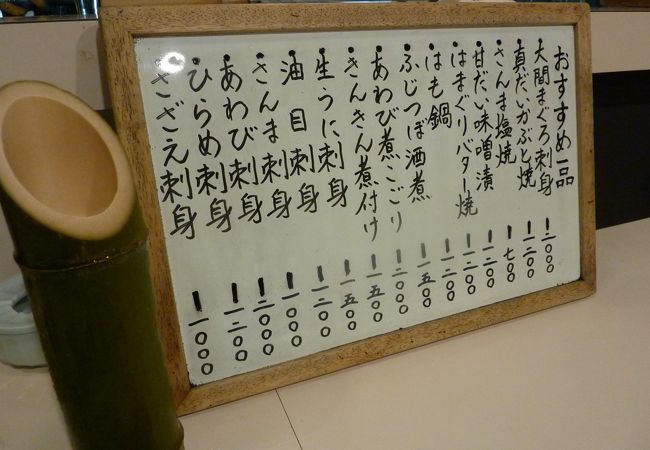 おすすめ一品
・大間まぐろ刺身 ー 二〇〇〇
・真だいかぶと焼 ー 一二〇〇
・さんま塩焼 ー 七〇〇
・甘だい味噌漬 ー 一二〇〇
・はまぐりバター焼 ー
・はも鍋 ー
・ふじつぼ酒煮 ー 一五〇〇
・あわび煮こごり ー 二〇〇〇
・きんきん煮付け ー 二五〇〇
・生うに刺身 ー 一五〇〇
・油目刺身 ー 一二〇〇
・さんま刺身 ー 一〇〇〇
・あわび刺身 ー 二〇〇〇
・ひらめ刺身 ー 一二〇〇
・さざえ刺身 ー 一〇〇〇